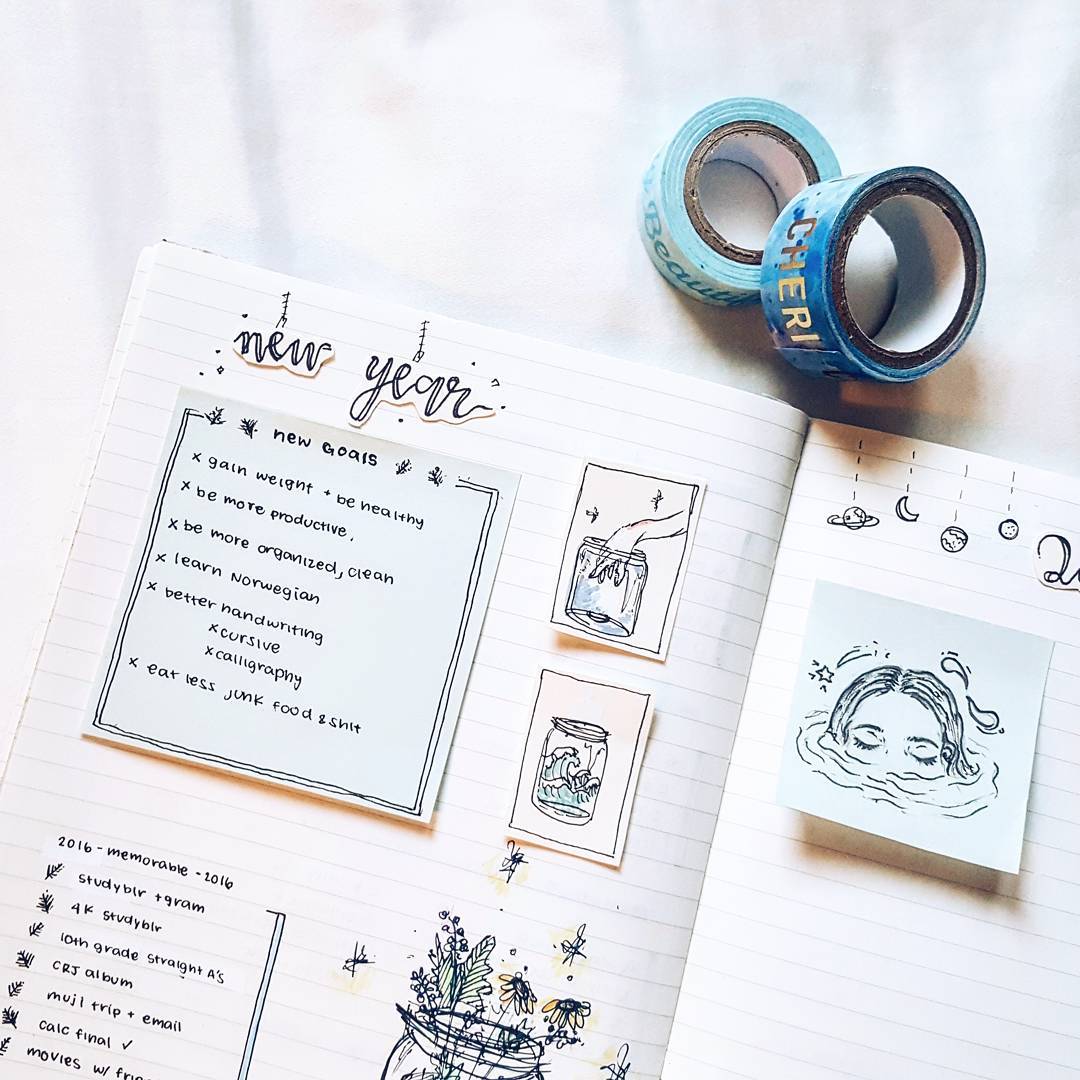 Beauti
CHERI
new year
new Goals
x gain weight + be healthy
x be more productive.
x be more organized, clean
x learn Norwegian
x better handwriting
x cursive
x calligraphy
x eat less junk food & shit
2016 - memorable - 2016
studyblr + gram
4K studyblr
10th grade straight A's
CRJ album
muji trip + email
calc final ✓
movies w/